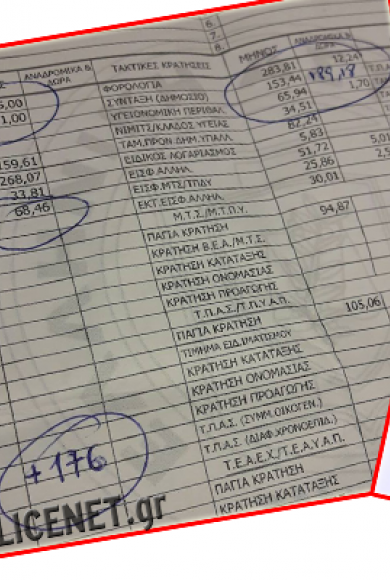 6.
7.
8.
ΑΝΑΔΡΟΜΙΚΑ & ΔΩΡΑ ΤΑΚΤΙΚΕΣ ΚΡΑΤΗΣΕΙΣ ΜΗΝΟΣ
ΦΟΡΟΛΟΓΙΑ 283,81 12,24
5,00 ΣΥΝΤΑΞΗ (ΔΗΜΟΣΙΟ) 153,44
1,00 ΥΓΕΙΟΝΟΜΙΚΗ ΠΕΡΙΘΑΛ. 65,94 1,70
ΝΙΜΙΤΣ/ΚΛΑΔΟΣ ΥΓΕΙΑΣ 34,51
ΤΑΜ.ΠΡΟΝ.ΔΗΜ.ΥΠΑΛΛ. 82,24
159,61 ΕΙΔΙΚΟΣ ΛΟΓΑΡΙΑΣΜΟΣ 5,83
268,07 ΕΙΣΦ.ΑΛΛΗΛ. 51,72 5,01
33,81 ΕΙΣΦ.ΜΤΣ/ΤΠΔΥ 25,86
68,46 ΕΚΤ.ΕΙΣΦ.ΑΛΛΗΛ. 30,01
Μ.Τ.Σ./Μ.Τ.Π.Υ.
ΠΑΓΙΑ ΚΡΑΤΗΣΗ 94,87
ΚΡΑΤΗΣΗ Β.Ε.Α./Μ.Τ.Σ.
ΚΡΑΤΗΣΗ ΚΑΤΑΤΑΞΗΣ
ΚΡΑΤΗΣΗ ΟΝΟΜΑΣΙΑΣ
ΚΡΑΤΗΣΗ ΠΡΟΑΓΩΓΗΣ
Τ.Π.Α.Σ./Τ.Π.Υ.Α.Π.
ΠΑΓΙΑ ΚΡΑΤΗΣΗ 105,06
ΤΜΗΜΑ ΕΙΔ.ΙΜΑΤΙΣΜΟΥ
ΚΡΑΤΗΣΗ ΚΑΤΑΤΑΞΗΣ
ΚΡΑΤΗΣΗ ΟΝΟΜΑΣΙΑΣ
ΚΡΑΤΗΣΗ ΠΡΟΑΓΩΓΗΣ
Τ.Π.Α.Σ. (ΣΥΜΜ.ΟΙΚΟΓΕΝ.)
Τ.Π.Α.Σ. (ΔΙΑΦ.ΧΡΟΝΟΕΠΙΔ.)
Τ.Ε.Α.Ε.Χ./Τ.Ε.Α.Υ.Α.Π.
ΠΑΓΙΑ ΚΡΑΤΗΣΗ
ΚΡΑΤΗΣΗ ΚΑΤΑΤΑΞΗΣ
+176
LICENET.gr